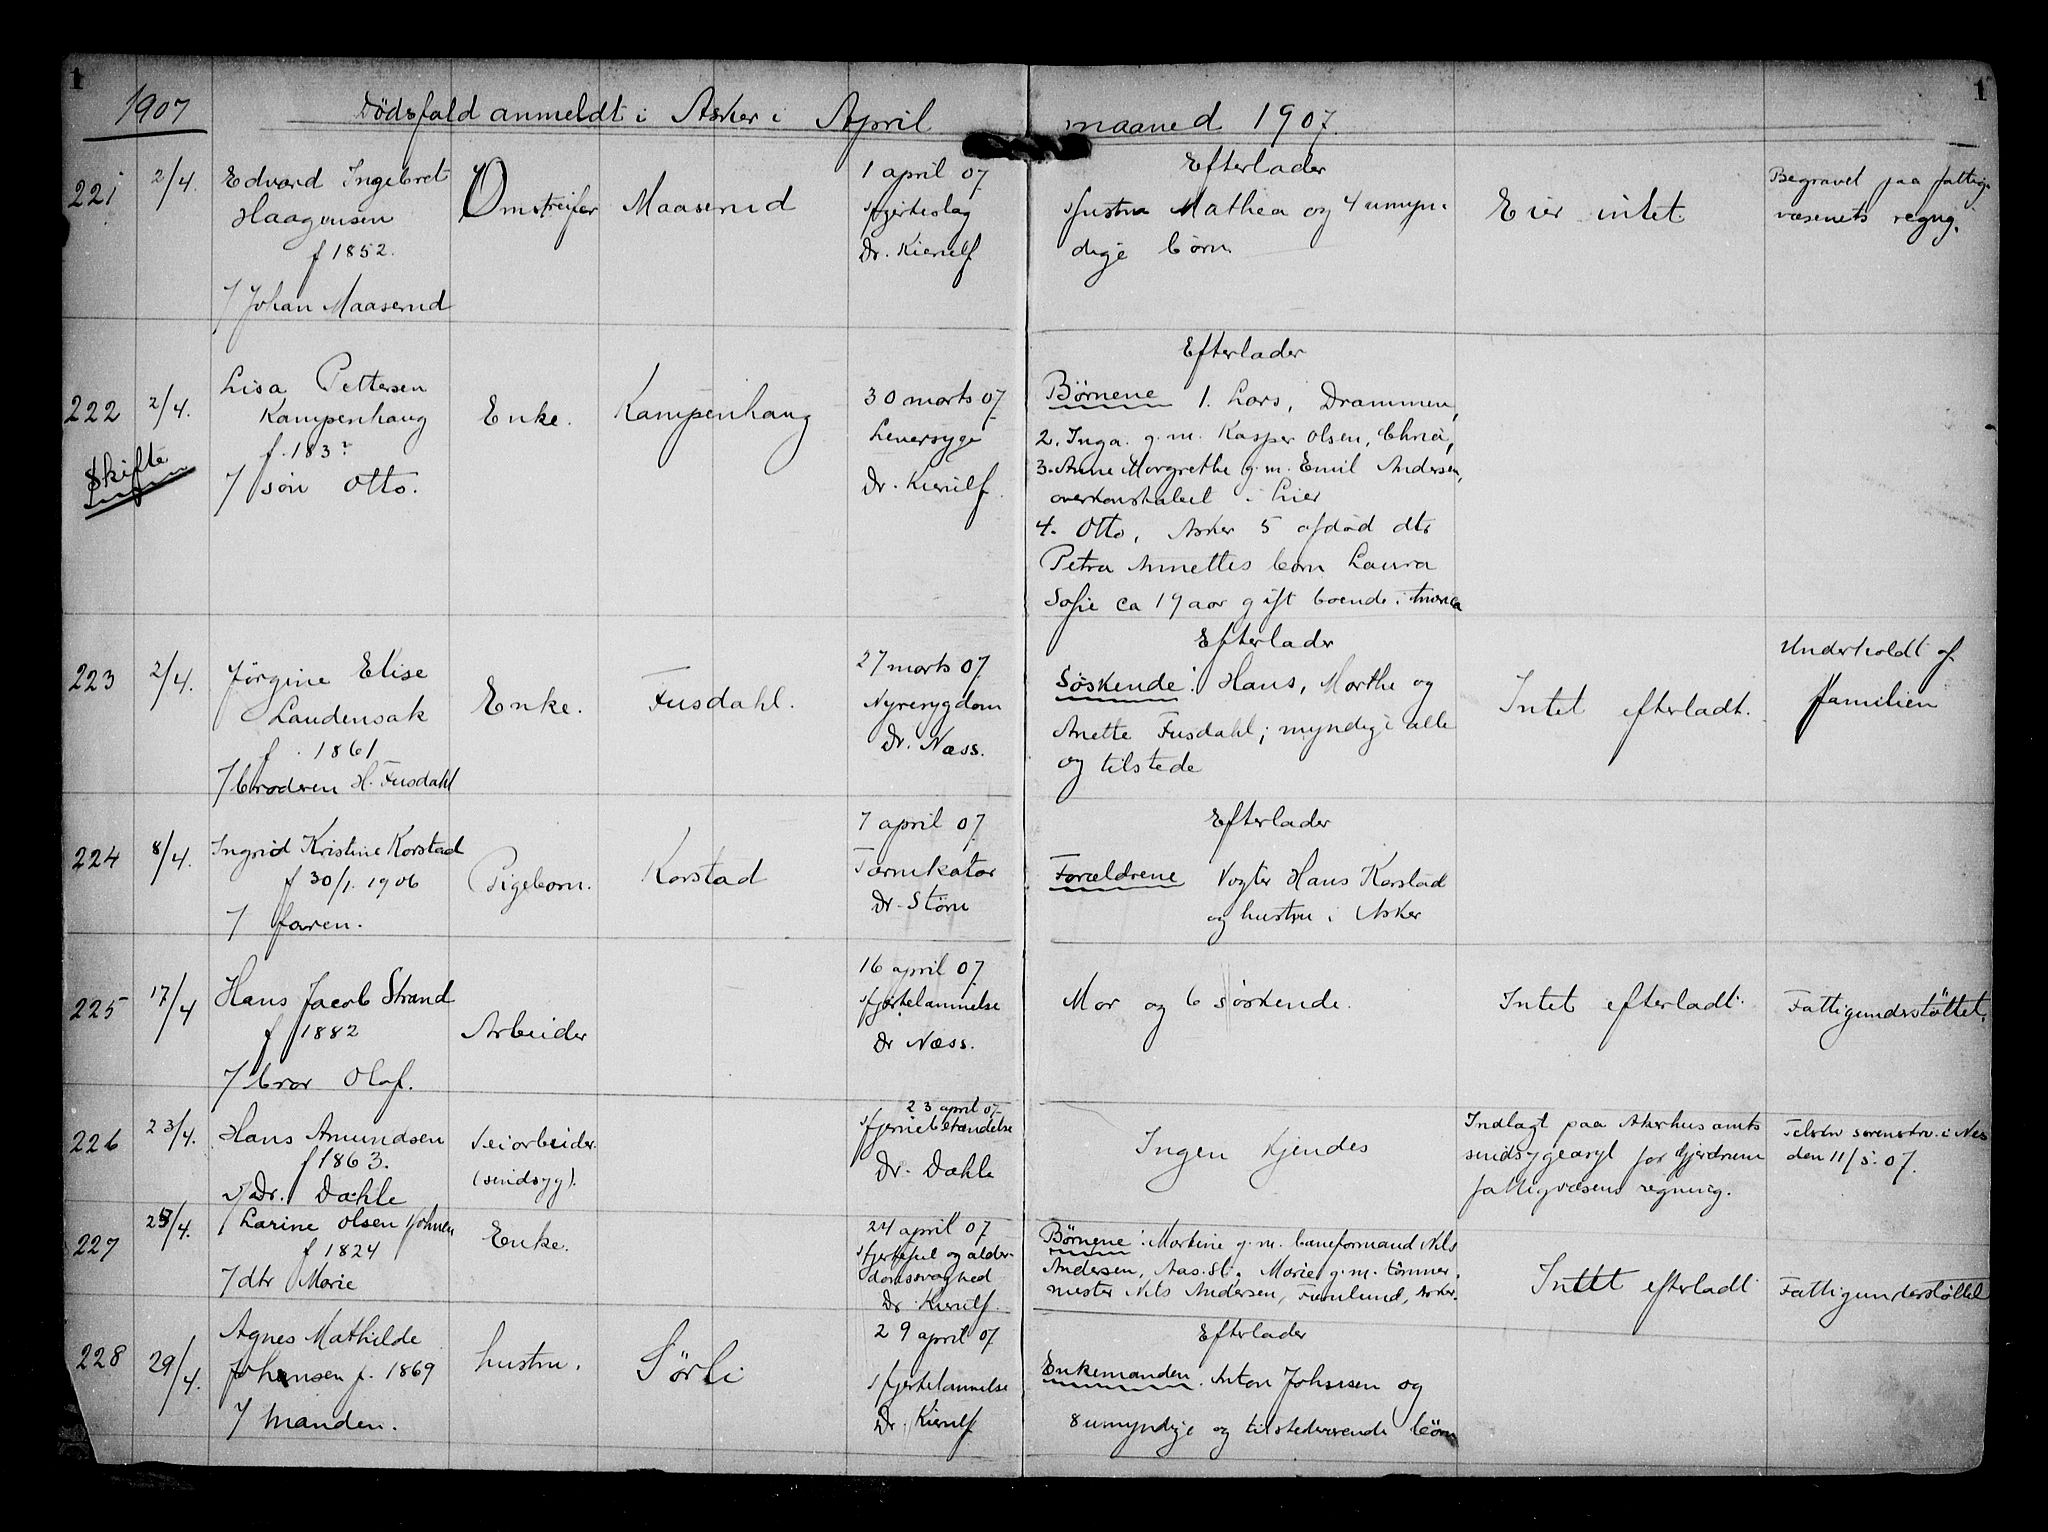 1
1
1907
Dödsfald anmeldt i Asker i April maaned 1907.
221
2/4.
Edvard Ingebret
Haagensen
f 1852.
/ Johan Maaserud
Omstreifer
Maaserud
1 april 07
Hjerteslag
Dr. Kierulf
Efterlader
Hustru Mathea og 4 umyn-
dige börn
Eier intet
Begravet paa fattig-
væsenets regng.
222
Skifte
2/4.
Lisa Pettersen
Kampenhaug
f. 183?
/ sön Otto.
Enke.
Kampenhaug
30 marts 07
Leversyge
Dr. Kierulf.
Efterlader
Börnene 1. Lars, Drammen,
2. Inga g.m. Kasper Olsen, Chria,
3. Anne Margrethe g.m. Emil Andersen,
overkonstabel i Lier
4. Otto, Asker 5 afdöd dtr
Petra Annettes barn Laura
Sofie ca 19 aar gift boende i
223
2/4.
Jörgine Elise
Laudensak
f. 1861
/ broderen H. Fusdahl
Enke.
Fusdahl.
27 marts 07
Nyresygdom
Dr. Næss.
Efterlader
Söskende: Hans, Marthe og
Anette Fusdahl; myndige alle
og tilstede
Intet efterladt.
Underholdt af
familien
224
8/4.
Ingrid Kristine Korstad
f 30/1. 1906
/ faren.
Pigebarn.
Korstad
7 april 07
Tarmkatar
Dr. Störn
Efterlader
Forældrene Vogter Hans Korstad
og hustru i Asker
225
17/4
Hans Jacob Strand
f 1882
/ bror Olaf.
Arbeider
16 april 07
Hjertelammelse
Dr Næss.
Mor og 6 söskende.
Intet efterladt.
Fattigunderstöttet.
226
23/4.
Hans Amundsen
f 1863.
/ Dr. Dahle
Veiarbeider.
(sindsyg).
23 april 07
Hjernebetændelse
Dr. Dahle
Ingen kjendes
Indlagt paa Akerhus amts
sindsygeasyl for Gjerdrum
fattigvæsens regning.
sorenskr. i Nes
den 11/5. 07.
227
25/4.
Larine Olsen
f 1824
/ dtr Marie
Enke.
24 april 07
Hjertefeil og alder-
domssvaghed
Dr. Kierulf.
Börnene: Martine g.m. baneformand Nils
Andersen, Aas st. Marie g.m. tömmer-
mester Nils Andersen, Furulund, Asker.
Intet efterladt
Fattigunderstöttet
228
29/4.
Agnes Mathilde
Johansen f. 1869
/ Manden.
hustru.
Sörli
29 april 07
Hjertelammelse
Dr. Kierulf
Efterlader
Enkemanden. Anton Johansen og
8 umyndige og tilstedeværende börn